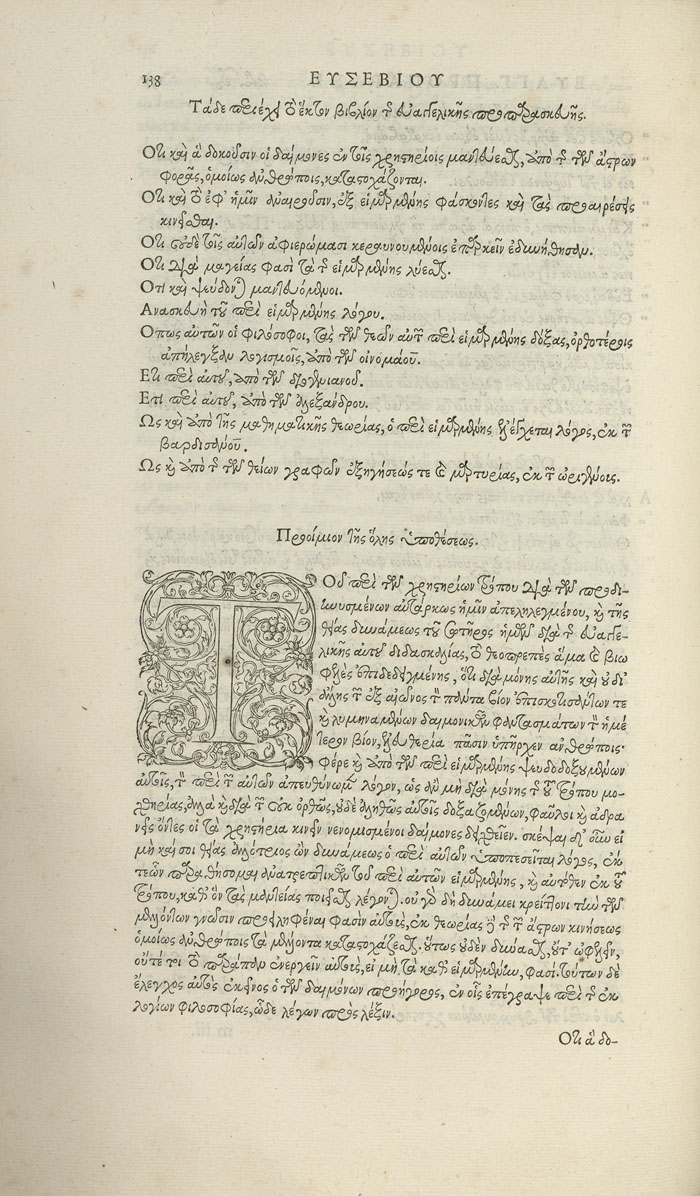 138 ΕΥΣΕΒΙΟΥ
Τάδε περιέχει τὸ ἕκτον βιβλίον τῆς Εὐαγγελικῆς προπαρασκευῆς.
Ὅτι καὶ ἃ δοκοῦσιν οἱ δαίμονες ἐν τοῖς χρηστηρίοις μαντεύεσθαι, ἀπὸ τῆς τῶν ἄστρων
φορᾶς, ὁμοίως ἀνθρώποις, καταστοχάζονται.
Ὅτι καὶ τὸ ἐφ' ἡμῖν ἀναιροῦσιν, ἐξ εἱμαρμένης φάσκοντες καὶ τὰς προαιρέσεις
κινεῖσθαι.
Ὅτι οὐδὲ τοῖς αὐτῶν ἀφιερώμασι κεραυνουμένοις ἐπαρκεῖν ἐδυνήθησαν.
Ὅτι διὰ μαγείας φασὶ τὰ τῆς εἱμαρμένης λύεσθαι.
Ὅτι καὶ ψεύδονται μαντευόμενοι.
Ἀνασκευὴ τοῦ περὶ εἱμαρμένης λόγου.
Ὅπως αὐτῶν οἱ φιλόσοφοι, τὰς τῶν θεῶν αὐτῶν περὶ εἱμαρμένης δόξας, ὀρθοτέροις
ἀπήλεγξαν λογισμοῖς, ἀπὸ τῶν οἰνομάου.
Ἔτι περὶ αὐτοῦ, ἀπὸ τῶν διογενιανοῦ.
Ἔτι περὶ αὐτοῦ, ἀπὸ τῶν ἀλεξάνδρου.
Ὡς καὶ ἀπὸ τῆς μαθηματικῆς θεωρίας, ὁ περὶ εἱμαρμένης ἐλέγχεται λόγος, ἐκ τῶν
βαρδισάνου.
Ὡς καὶ ἀπὸ τῆς τῶν θείων γραφῶν ἐξηγήσεώς τε καὶ μαρτυρίας, ἐκ τῶν ὠριγένους.
Προοίμιον τῆς ὅλης ὑποθέσεως.
Τοῦ περὶ τῶν χρηστηρίων τρόπου διὰ τῶν προδι-
ηνυσμένων αὐτάρκως ἡμῖν ἀπεληλεγμένου, καὶ τῆς
θείας δυνάμεως τοῦ σωτῆρος ἡμῶν διὰ τῆς εὐαγγε-
λικῆς αὐτοῦ διδασκαλίας, τὸ θεοπρεπὲς ἅμα καὶ βιω
φελὲς ἐπιδεδειγμένης, ὅτι διὰ μόνης αὐτῆς καὶ οὐδ'
ἄλλης τῶν ἐξ αἰῶνος τὸν πάντα βίον ἐπισκοτισάντων τε
καὶ λυμηναμένων δαιμονικῶν φαντασμάτων τὸν ἡμέ
τερον βίον, ἐλευθερία πᾶσιν ὑπῆρχεν ἀνθρώποις·
φέρε καὶ ἀπὸ τῶν περὶ εἱμαρμένης ψευδοδοξουμένων
αὐτοῖς, τὸν περὶ τῶν αὐτῶν ἀπευθύνωμεν λόγον, ὡς ἂν μὴ διὰ μόνης τῆς τοῦ τρόπου μο-
χθηρίας, ἀλλὰ καὶ διὰ τῶν οὐκ ὀρθῶς, οὐδὲ ἀληθῶς αὐτοῖς δοξαζομένων, φαῦλοι καὶ ἀδρα
νεῖς ὄντες οἱ τὰ χρηστήρια κινεῖν νενομισμένοι δαίμονες διελεγχθεῖεν. σκέψαι δ' οὖν εἰ
μὴ καί σοι θείας ἀλλότριος ὢν δυνάμεως ὁ περὶ αὐτῶν ὑποπεσεῖται λόγος, ἐκ
τεῶν παραθήσομαι ἀνατρεπτικῶν τοῦ περὶ αὐτῶν εἱμαρμένης, καὶ αὐτόθεν ἐκ τοῦ
τρόπου, καθ' ὃν τὰς μαντείας ποιεῖσθαι λέγονται. οὐ γὰρ δὴ δυνάμει κρείττονι τὴν τῶν
μελλόντων γνῶσιν προσειληφέναι φασὶν αὐτοῖς, ἐκ θεωρίας δὲ τῆς τῶν ἄστρων κινήσεως
ὁμοίως ἀνθρώποις τὰ μέλλοντα καταστοχάζεσθαι. οὕτως οὐδὲν δύνασθαι, οὔτ' ὠφελεῖν,
οὔτέ τι τὸ παράπαν ἐνεργεῖν αὐτοῖς, εἰ μὴ τὰ καθ' εἱμαρμένην, φασί. τούτων δὲ
ἔλεγχος αὐτὸς ἐκεῖνος ὁ τῶν δαιμόνων προήγορος, ἐν οἷς ἐπέγραψε περὶ τῆς ἐκ
λογίων φιλοσοφίας, ὧδε λέγων πρὸς λέξιν.
Ὅτι ἃ δο-